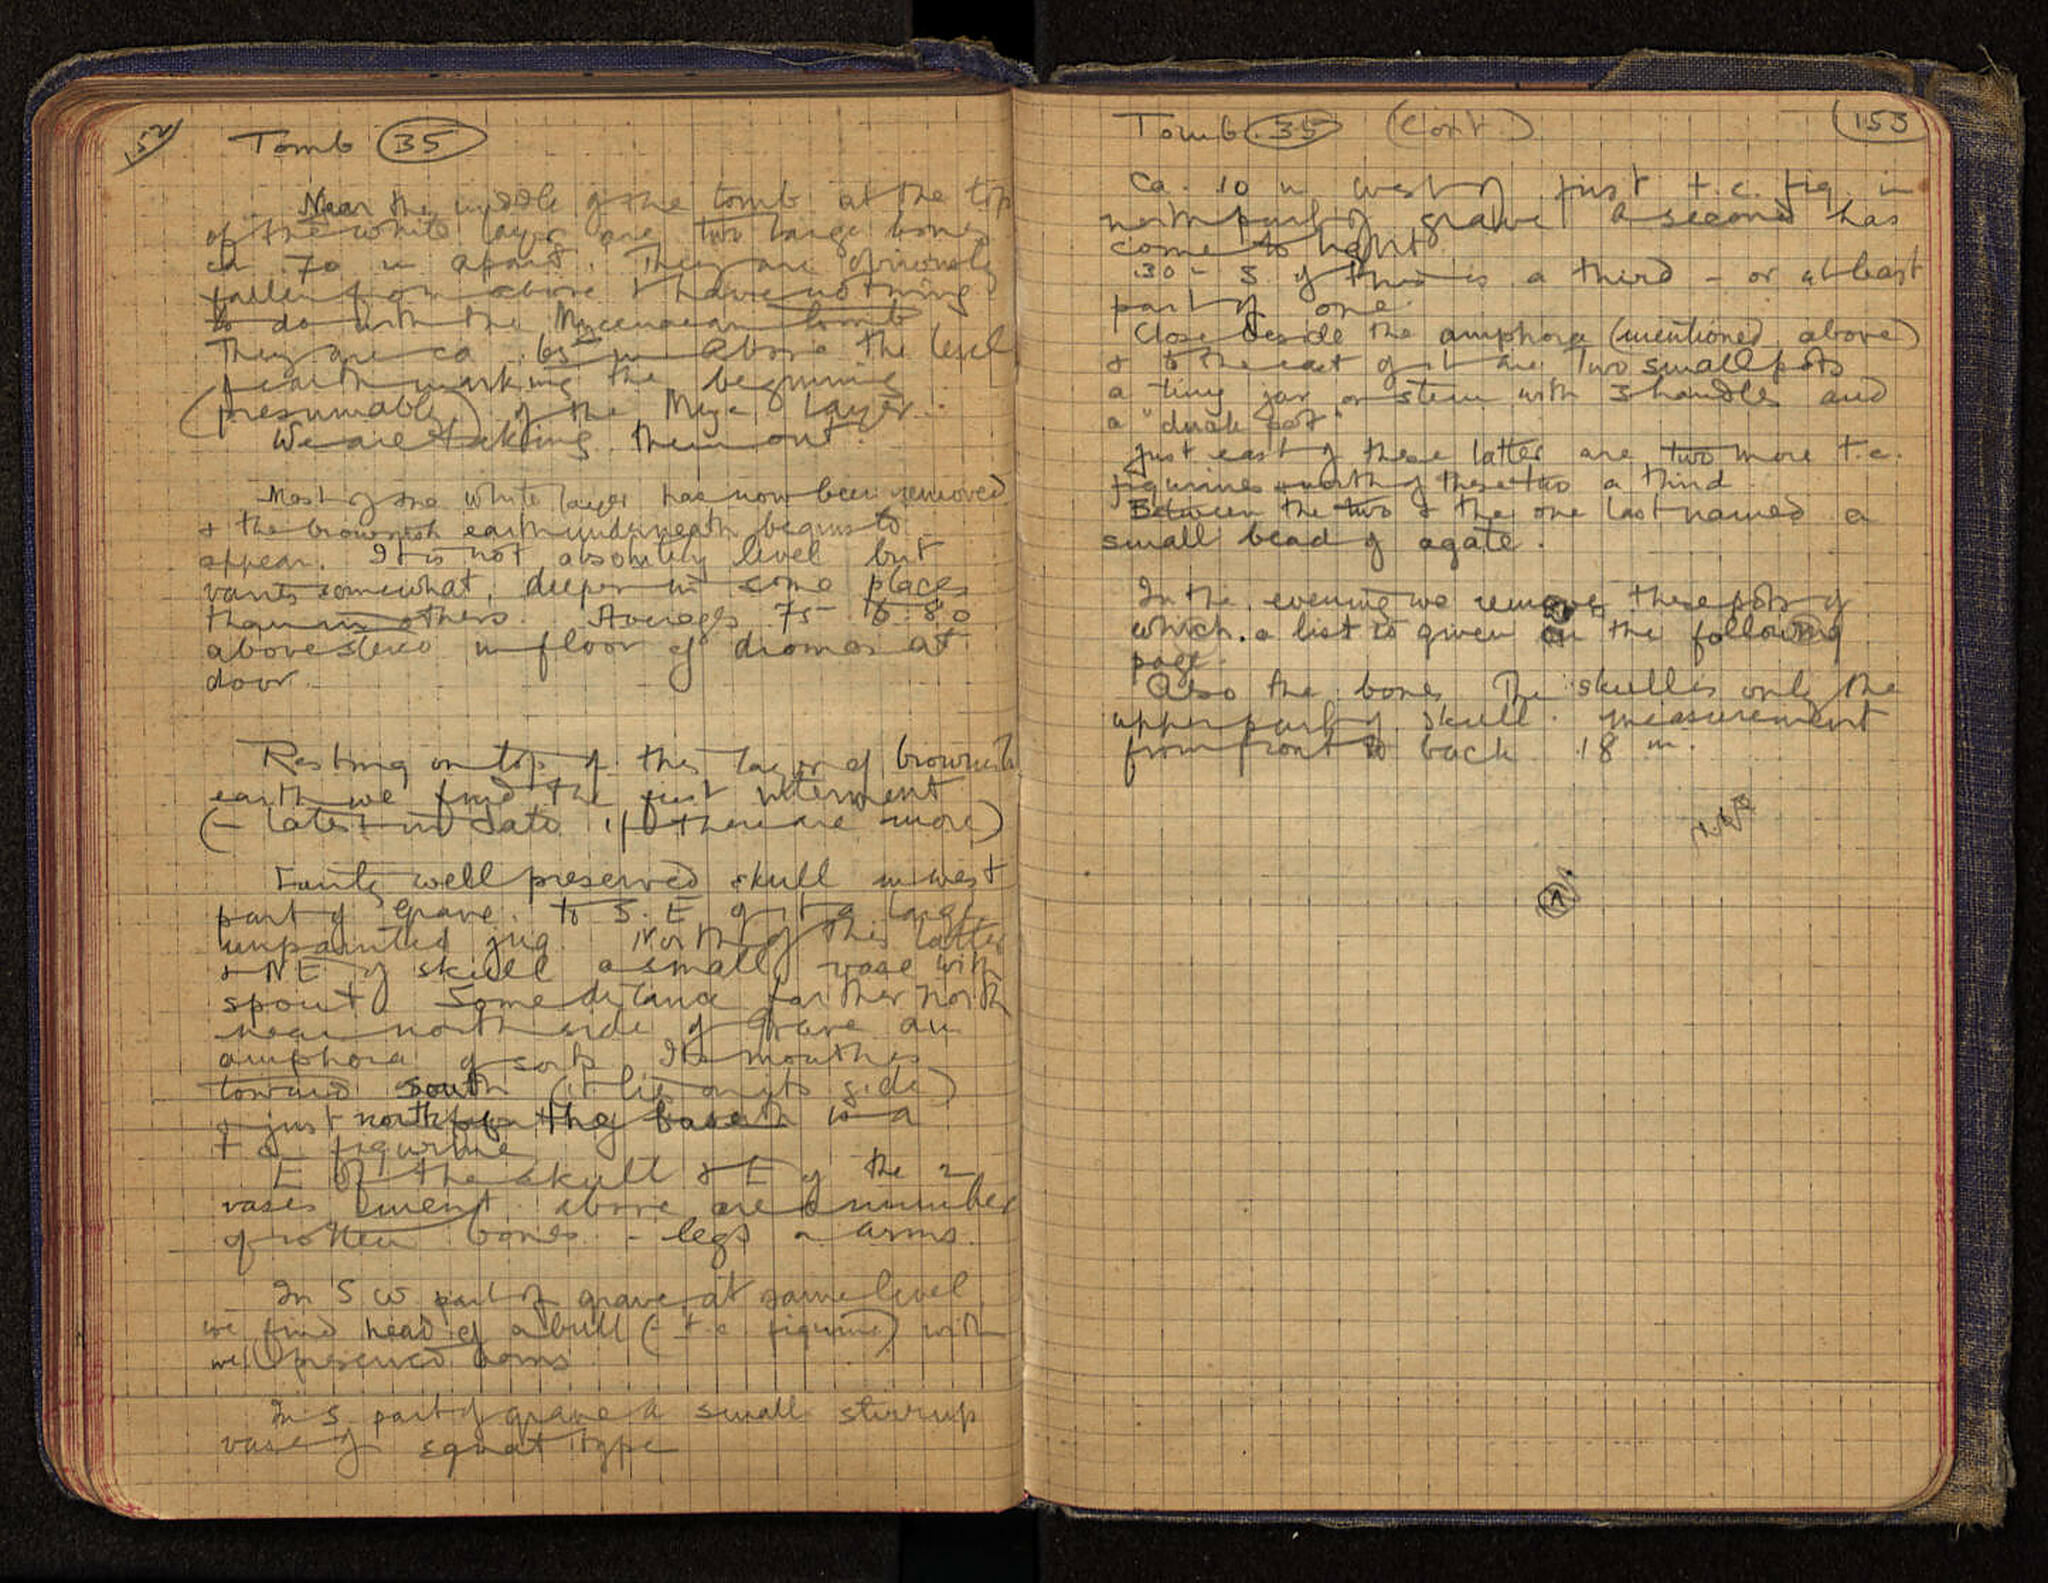 152
Tomb 35
Near the middle of the tomb at the top
of the white layer are two large bones
ca .70 m apart. They are obviously
fallen from above & have nothing
to do with the Mycenaean tomb
They are ca .65 m above the level
of earth marking the beginning
(presumably) of the Myc. layer.
We are taking them out.
Most of the white layer has now been removed
& the brownish earth underneath begins to
appear. It is not absolutely level but
varies somewhat, deeper in some places
than in others. Averages .75 to .80
above stereo in floor of dromos at
door.
Resting on top of this layer of brownish
earth we find the first interment
(- latest in date if there are more)
Fairly well preserved skull in west
part of grave. to S.E. of it a large
unpainted jug. North of this latter
& NE of skull a small vase with
spout. Some distance farther north
near north side of grave an
amphora of sorts. Its mouth is
toward south (it lies on its side)
& just north of the base is a
t.c. figurine
E of the skull & E of the 2
vases ment. above are a number
of rotten bones - legs & arms.
In S W part of grave at same level
we find head of a bull (- t.c. figurine) with
well preserved horns
In S. part of grave a small stirrup
vase of squat type
Tomb 35 (cont.)
153
Ca. .10 m west of first t.c. fig. in
north part of grave a second has
come to light
.30 - S of this is a third - or at least
part of one.
Close beside the amphora (mentioned above)
& to the east of it are two small pots
a tiny jar on stem with 3 handles and
a "duck pot"
Just east of these latter are two more t.c.
figurines north of these two a third.
Between the two & the one last named a
small bead of agate.
In the evening we remove these pots of
which a list is given on the following
page.
Also the bones The skull is only the
upper part of skull. measurement
from front to back .18 m.